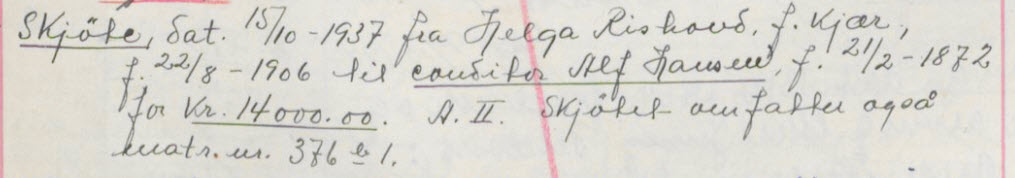 Skjøte, dat. 15/10-1937 fra Helga Rishovd, f. Kjær,
f. 22/8-1906 til conditor Alf Hansen, f. 21/2-1872
for Kr. 14000.00. A. II. Skjøtet omfatter også
matr. nr. 376 b 1.